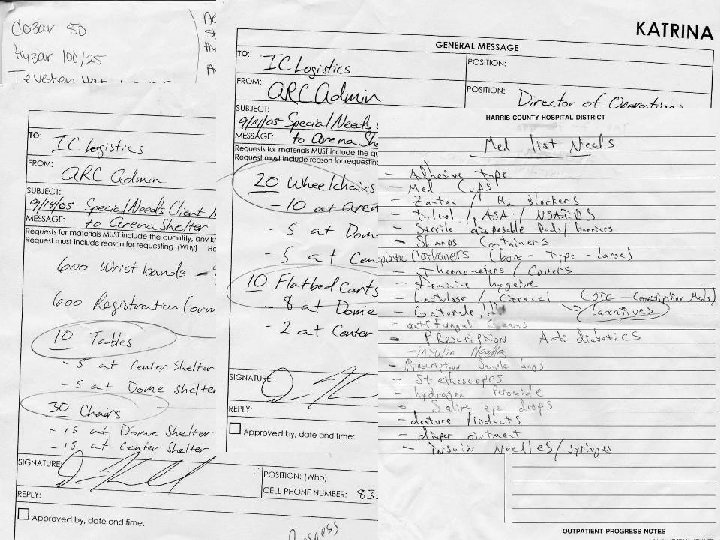 Cozar 50
Hyzar 100/25
KATRINA
GENERAL MESSAGE
TO: IC Logistics
POSITION:
FROM: ARC Admin
POSITION: Director of Operations
SUBJECT:
9/11/05 Special Needs
MESSAGE: to Arena She
Requests for materials MUST include the qu
Request must include reason for requesting
20 Wheelchairs
- 10 at Aren
- 5 at Dome
- 5 at Cen
10 Flatbed Carts
- 8 at Dome
- 2 at Center
SIGNATURE
REPLY:
Approved by, date and time:
TO: IC Logistics
FROM: ARC Admin
SUBJECT:
Special Needs Client
MESSAGE: to Arena Shelter
Requests for materials MUST include the quantity, any
Request must include reason for requesting (WHY)
600 Wrist bands
600 Registration Forms
10 Tables
- 5 at Center Shelter
- 5 at Dome Shelter
30 Chairs
- 15 at Dome Shelter
- 15 at Center Shelter
SIGNATURE:
POSITION: (Who)
CELL PHONE NUMBER: 83
REPLY:
Approved by, date and time.
HARRIS COUNTY HOSPITAL DISTRICT
Med list Needs
- Adhesive tape
- Med Cups
- Zantac / H2 Blockers
- Tylenol / ASA / NSAIDS
- Sterile disposable Pads / barriers
- Sharps Containers
Containers (box type - large)
- Thermometers / Covers
- Feminine hygiene
- Lactulose / (OTC - Constipation Meds)
- Laxatives
- antifungal creams
- Prescription Anti diabetics
- Insulin Needles
- Stethoscopes
- hydrogen peroxide
- Saline eye drops
- denture Products
- diaper ointment
- Insulin Needles / Syringes
OUTPATIENT PROGRESS NOTES